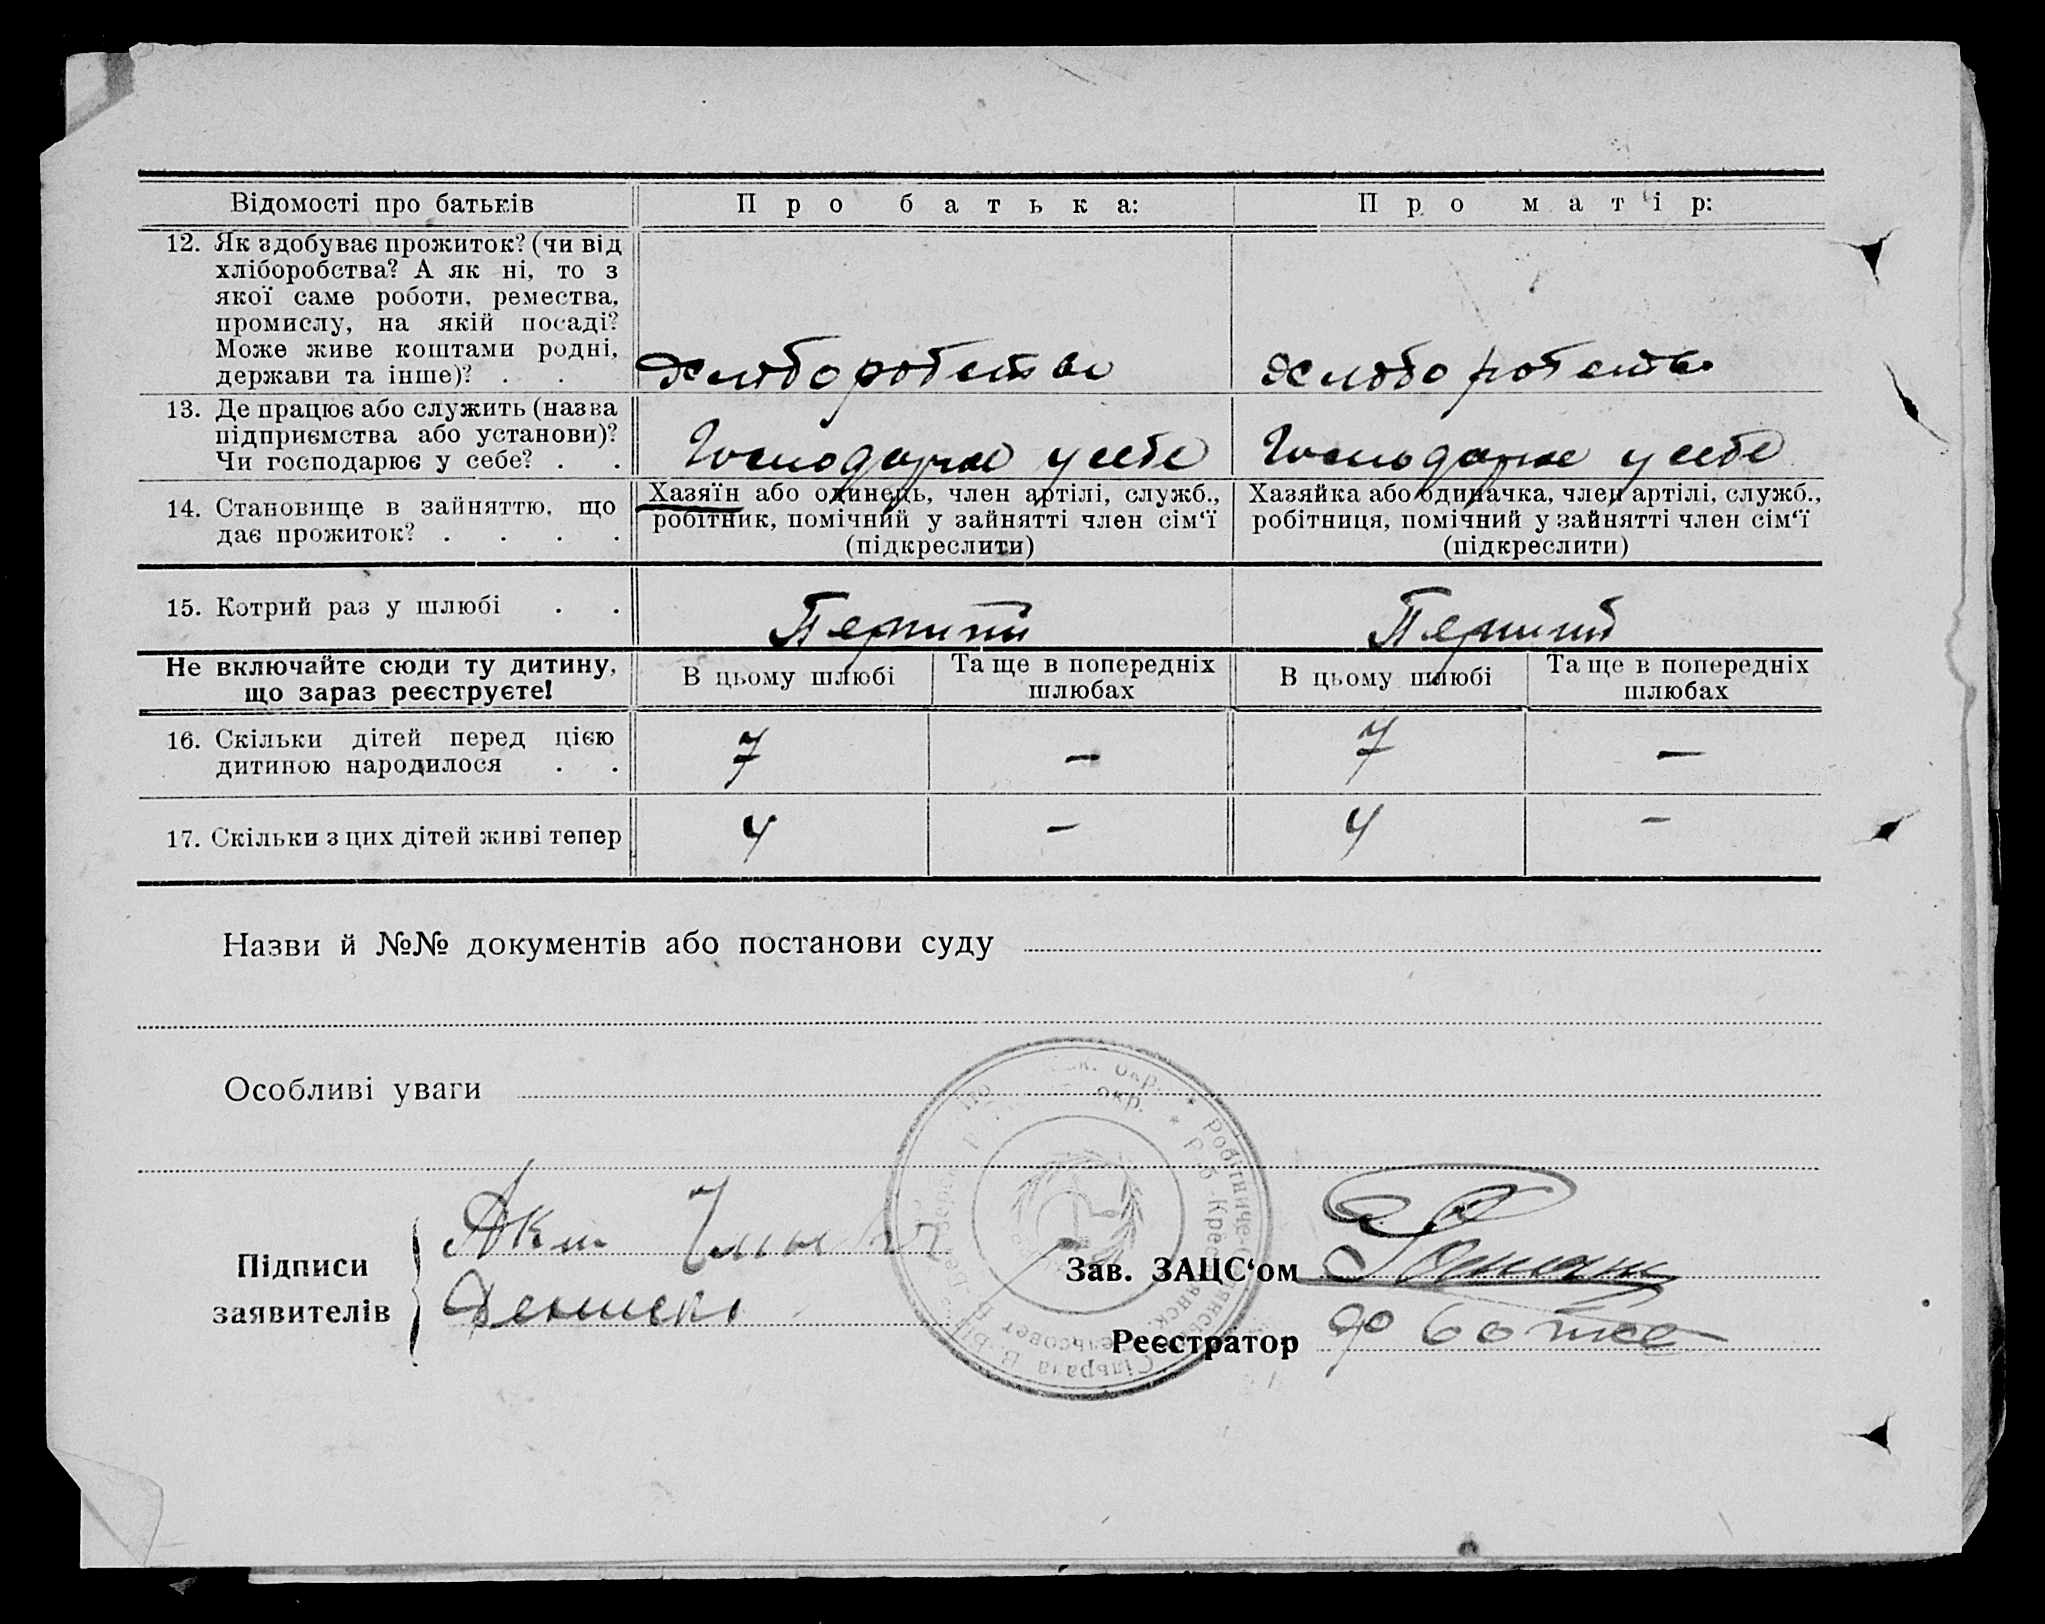 Відомості про батьків
Про батька:
Про матір:
12. Як здобуває прожиток? (чи від
хліборобства? А як ні, то з
якої саме роботи, ремества,
промислу, на якій посаді?
Може живе коштами родні,
держави та інше)? . .
Хліборобство
Хліборобство
13. Де працює або служить (назва
підприємства або установи)?
Чи господарює у себе? . .
Господарює у себе
Господарює у себе
14. Становище в зайняттю, що
дає прожиток? . . . .
Хазяїн або одинець, член артілі, служб.,
робітник, помічний у зайнятті член сім‘ї
(підкреслити)
Хазяйка або одиначка, член артілі, служб.,
робітниця, помічний у зайнятті член сім‘ї
(підкреслити)
15. Котрий раз у шлюбі . .
Перший
Перший
Не включайте сюди ту дитину,
що зараз реєструєте!
В цьому шлюбі
Та ще в попередніх
шлюбах
В цьому шлюбі
Та ще в попередніх
шлюбах
16. Скільки дітей перед цією
дитиною народилося . .
7
—
7
—
17. Скільки з цих дітей живі тепер
4
—
4
—
Назви й №№ документів або постанови суду
Особливі уваги
окр. * Робітниче-
окр. * Роб.-Крест
Сільрада
Підписи
заявителів
Зав. ЗАЦС‘ом
Реєстратор